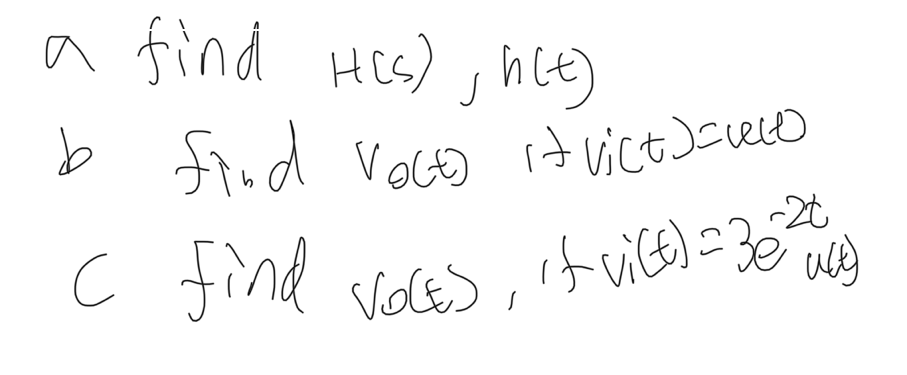 a find H(s), h(t)
b find vo(t) if vi(t)=u(t)
c find vo(t), if vi(t)=3e^-2t u(t)